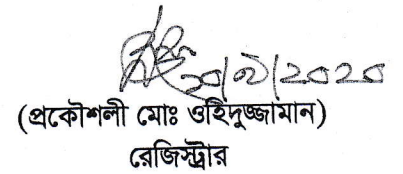 ২০/৯/২০২০
(প্রকৌশলী মোঃ ওহিদুজ্জামান)
রেজিস্ট্রার